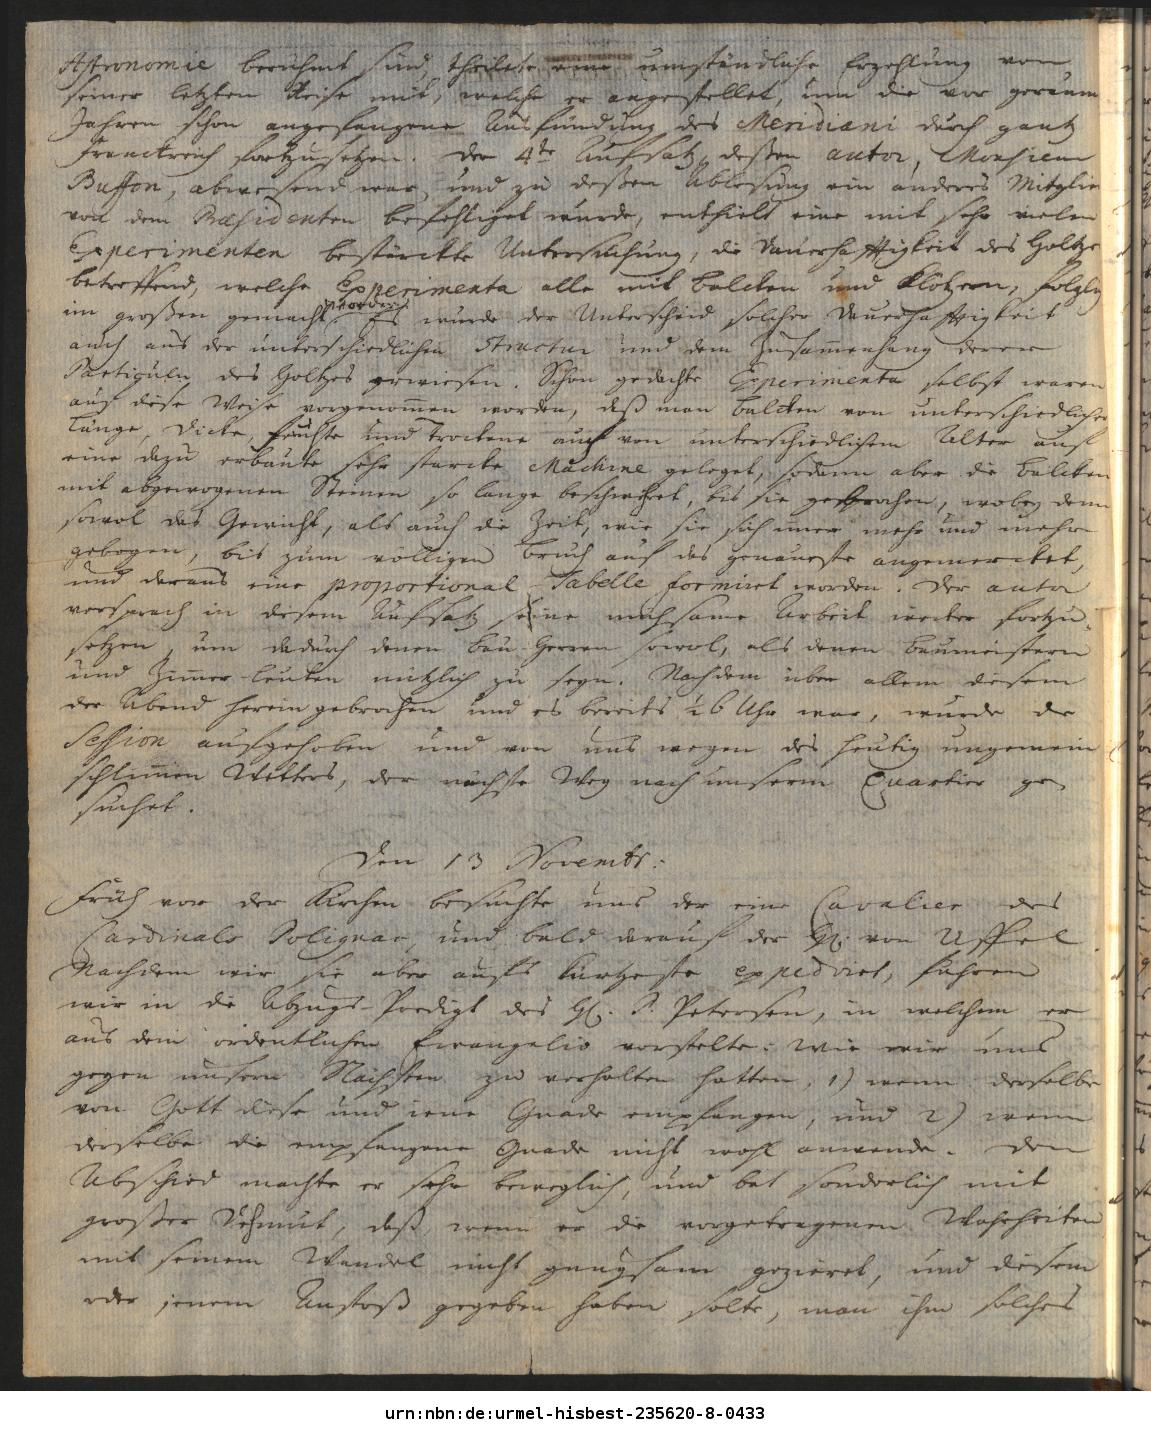 Astronomie berühmt sind, theilete eine umständliche Erzehlung von
seiner letzten Reise mit, welche er angestellet, um die vor geraum
Jahren schon angefangene Ausfündung des Meridiani durch gantz
Franckreich fortzusetzen. Der 4te Aufsatz, deßen autor, Monsieur
Buffon, abwesend war, und zu deßen Ablesung ein anderes Mitglied
von dem Præsidenten befehliget wurde, enthielt eine mit sehr vielen
Experimenten bestärckte Untersuchung, die Dauerhafftigkeit des Holtzes
betreffend, welche Experimenta alle mit Balcken und Klötzern, folglich
im großen gemacht worden. Es wurde der Unterscheid solcher Dauerhafftigkeit
auch aus der unterschiedlichen Structur und dem Zusam̅enhang derer
Particuln des Holtzes erwiesen. Schon gedachte Experimenta selbst waren
auf diese Weise vorgenom̅en worden, daß man Balcken von unterschiedlicher
Länge, Dicke, feuchte und trockene auch von unterschiedlichem Alter auf
eine dazu erbaute sehr starcke Machine geleget, sodann aber die Balcken
mit abgewogenen Steinen so lange beschwehret, bis sie gebrochen, wobey denn
sowol das Gewicht, als auch die Zeit, wie sie sich im̅er mehr und mehr
gebogen, bis zum völligen Bruch auf das genaueste angemercket,
und daraus eine proportional Tabelle formiret worden. Der autor
versprach in diesem Aufsatz seine mühsame Arbeit weiter fortzu-
setzen, um dadurch denen Bau-Herren sowol, als denen Baumeistern
und Zim̅er-leuten nützlich zu seyn. Nachdem über allem diesem
der Abend hereingebrochen und es bereits ½6 Uhr war, wurde die
Session aufgehoben und von uns wegen des heutig ungemein
schlim̅en Wetters, der nächste Weg nach unserm Quartier ge-
suchet.
Den 13 Novembr:
Früh vor der Kirchen besuchte uns der eine Cavalier des
Cardinals Polignac, und bald darauf der H. von Uffel.
Nachdem wir sie aber aufs kürtzeste expediret, fuhren
wir in die Abzugs-Predigt des H. P. Petersen, in welchem er
aus dem ordentlichen Evangelio vorstelte: Wie wir uns
gegen unsern Nächsten zu verhalten hatten, 1) wenn derselbe
von Gott diese und iene Gnade empfangen, und 2) wenn
derselbe die empfangene Gnade nicht wohl anwende. Den
Abschied machte er sehr beweglich, und bat sonderlich mit
großer Dehmut, daß, wenn er die vorgetragenen Wahrheiten
mit seinem Wandel nicht gnugsam gezieret, und diesem
oder jenem Anstoß gegeben haben solte, man ihm solches
urn:nbn:de:urmel-hisbest-235620-8-0433